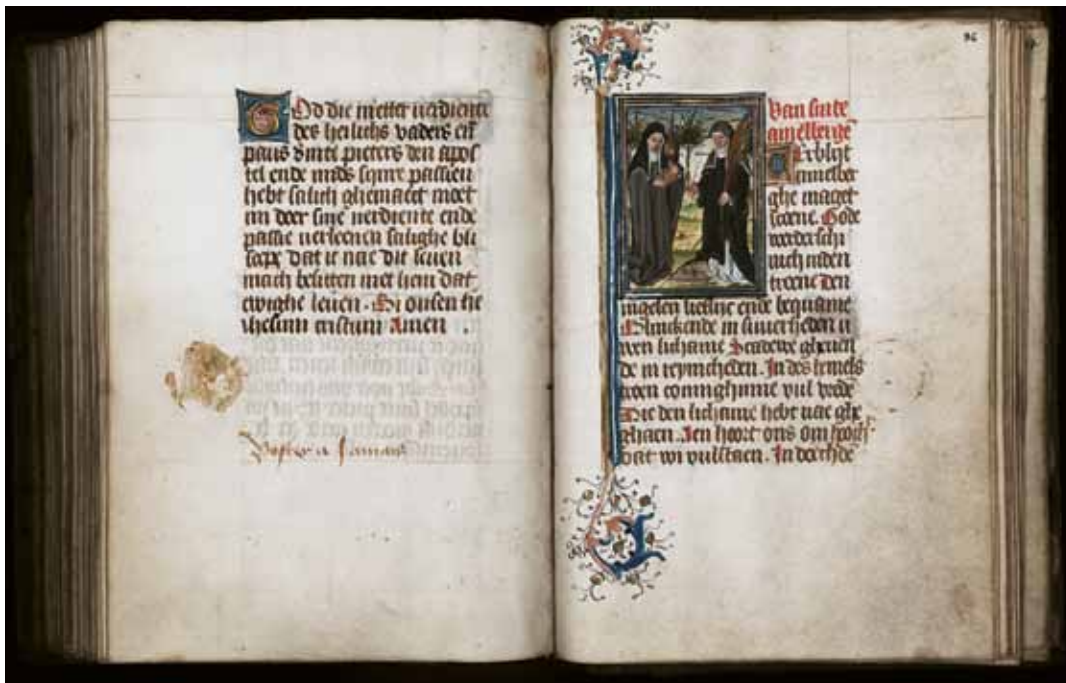 God die mitter verdiente
des heilichs vaders eñ
paus sinte pieters den apos
tel ende mids sijnre passien
hebt salich ghemaect moet
mi doer sine verdiente ende
passie verleenen salighe bli
scepe dat ic nae dit leuen
mach besitten met hem dat
ewighe leuen. Bi onsen he
ihesum cristum Amen.
96
Van sinte
amelberge
Verblijt
amelber
ghe maget
scone. Gode
werdersch
inden
trone Den
ingelen lieflijc ende bequame
Blinckende in suuerheden u
wen lichame Scaduwe gheuen
de in reynicheden. In des hemels
troen coninghinne vul vrede
Die den lichame hebt uae ghe
ghaen. Ien hoort ons om hoogh
dat wi vulstaen. In doechde